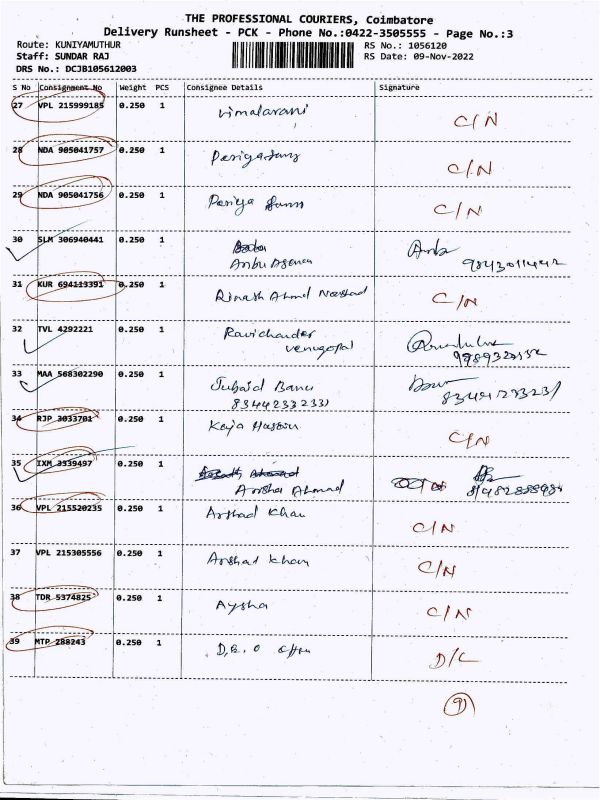 THE PROFESSIONAL COURIERS, Coimbatore
Delivery Runsheet - PCK - Phone No.:0422-3505555 - Page No.:3
Route: KUNIYAMUTHUR RS No.: 1056120
Staff: SUNDAR RAJ RS Date: 09-Nov-2022
DRS No.: DCJB105612003
S No Consignment No Weight PCS Consignee Details Signature
27 VPL 215999185 0.250 1 Vimalarani C/N
28 NDA 905041757 0.250 1 C/N
29 NDA 905041756 0.250 1 Periya C/N
30 SLM 306940441 0.250 1
Anbu Agency 9843011442
31 KUR 694113391 0.250 1 Ahmed C/N
32 TVL 4292221 0.250 1 Ravichander
venugopal
33 MAA 568302290 0.250 1 Jubaid Banu
8344233233
34 RJP 3033781 0.250 1 Kaja C/N
35 IXM 3539497 0.250 1
Ahmad
36 VPL 215520235 0.250 1 Arshad Khan C/N
37 VPL 215305556 0.250 1 Arshad Khan C/N
38 TDR 5374825 0.250 1 Aysha C/N
39 MTP 288243 0.250 1 D/L
9